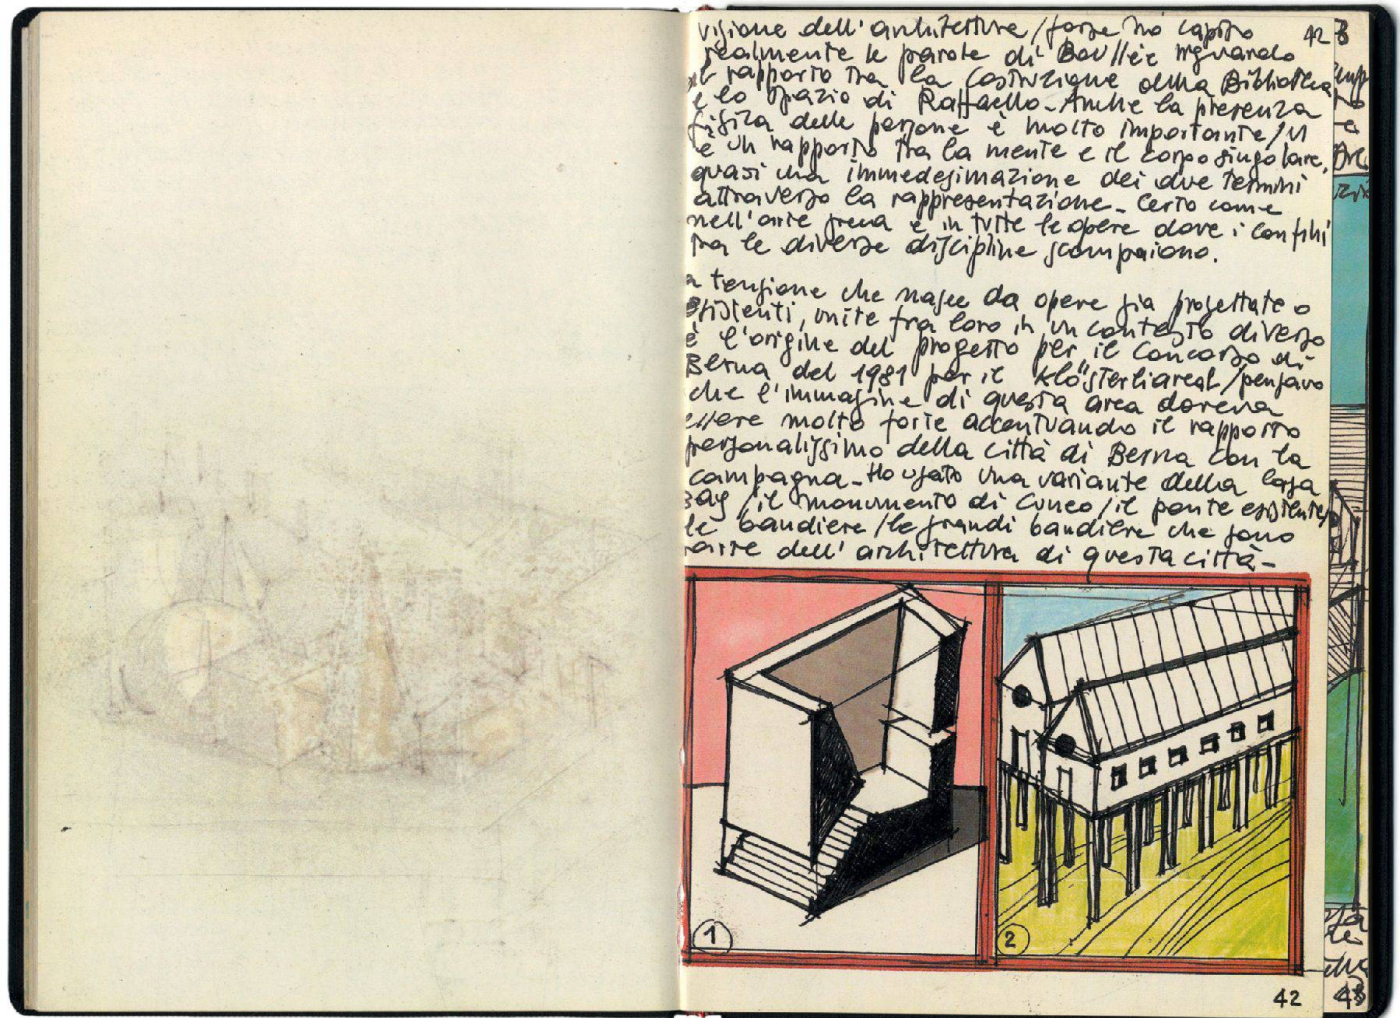 visione dell'architettura / forse ho capito 42
realmente le parole di Boullée riguardo
il rapporto tra la costruzione della Biblioteca
e lo spazio di Raffaello - Anche la presenza
fisica delle persone è molto importante / vi
è un rapporto tra la mente e il corpo singolare,
quasi una immedesimazione dei due termini
attraverso la rappresentazione - Certo come
nell'arte greca e in tutte le opere dove i confini
tra le diverse discipline scompaiono.
a tensione che nasce da opere già progettate o
esistenti, unite fra loro in un contesto diverso
è l'origine del progetto per il Concorso di
Berna del 1981 per il Klösterliareal / pensavo
che l'immagine di questa area doveva
essere molto forte accentuando il rapporto
personalissimo della città di Berna con la
campagna - Ho usato una variante della casa
Bay / il monumento di Cuneo / il ponte esistente /
le bandiere / le grandi bandiere che sono
parte dell'architettura di questa città -
1
2
42
43